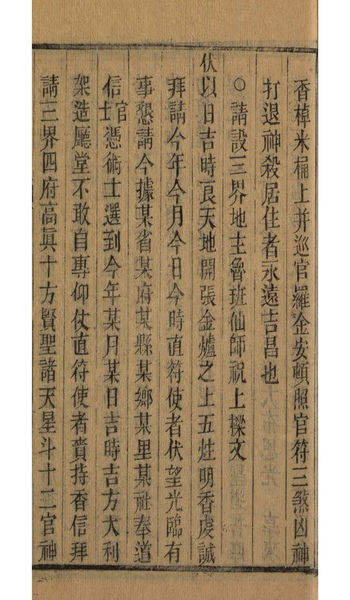 香棹米桶上并巡官羅金安頓照官符三煞凶神
打退神殺居住者永遠吉昌也
○請設三界地主魯班仙師祝上樑文
伏以日吉時良天地開張金爐之上五炷明香虔誠
拜請今年今月今日今時直符使者伏望光臨有
事懇請今據某省某府某縣某鄉某里某社奉道
信官士憑術士選到今年某月某日吉時吉方大利
架造廳堂不敢自專仰仗直符使者賫持香信拜
請三界四府高真十方賢聖諸天星斗十二宮神